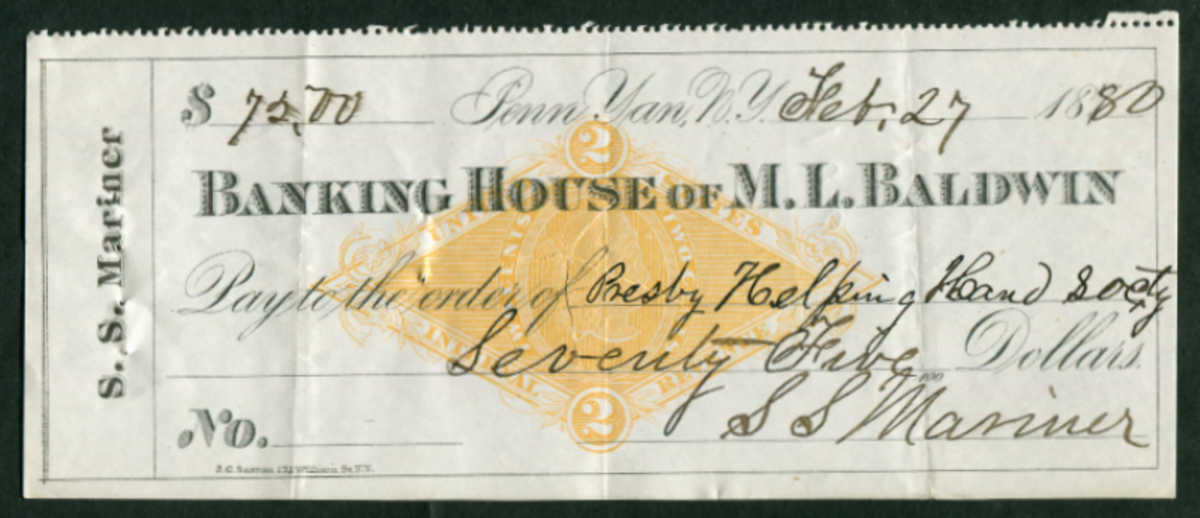 S. S. Mariner
$ 75.00 Penn Yan, N.Y. Feb. 27 1880
2
BANKING HOUSE OF M. L. BALDWIN
UNITED STATES
TWO CENTS
Pay to the order of Presby Helping Hand Socty
Seventy Five Dollars.
100
INTERNAL REVENUE
2
S S Mariner
No.
S.C. Saxton 172 William St. N.Y.